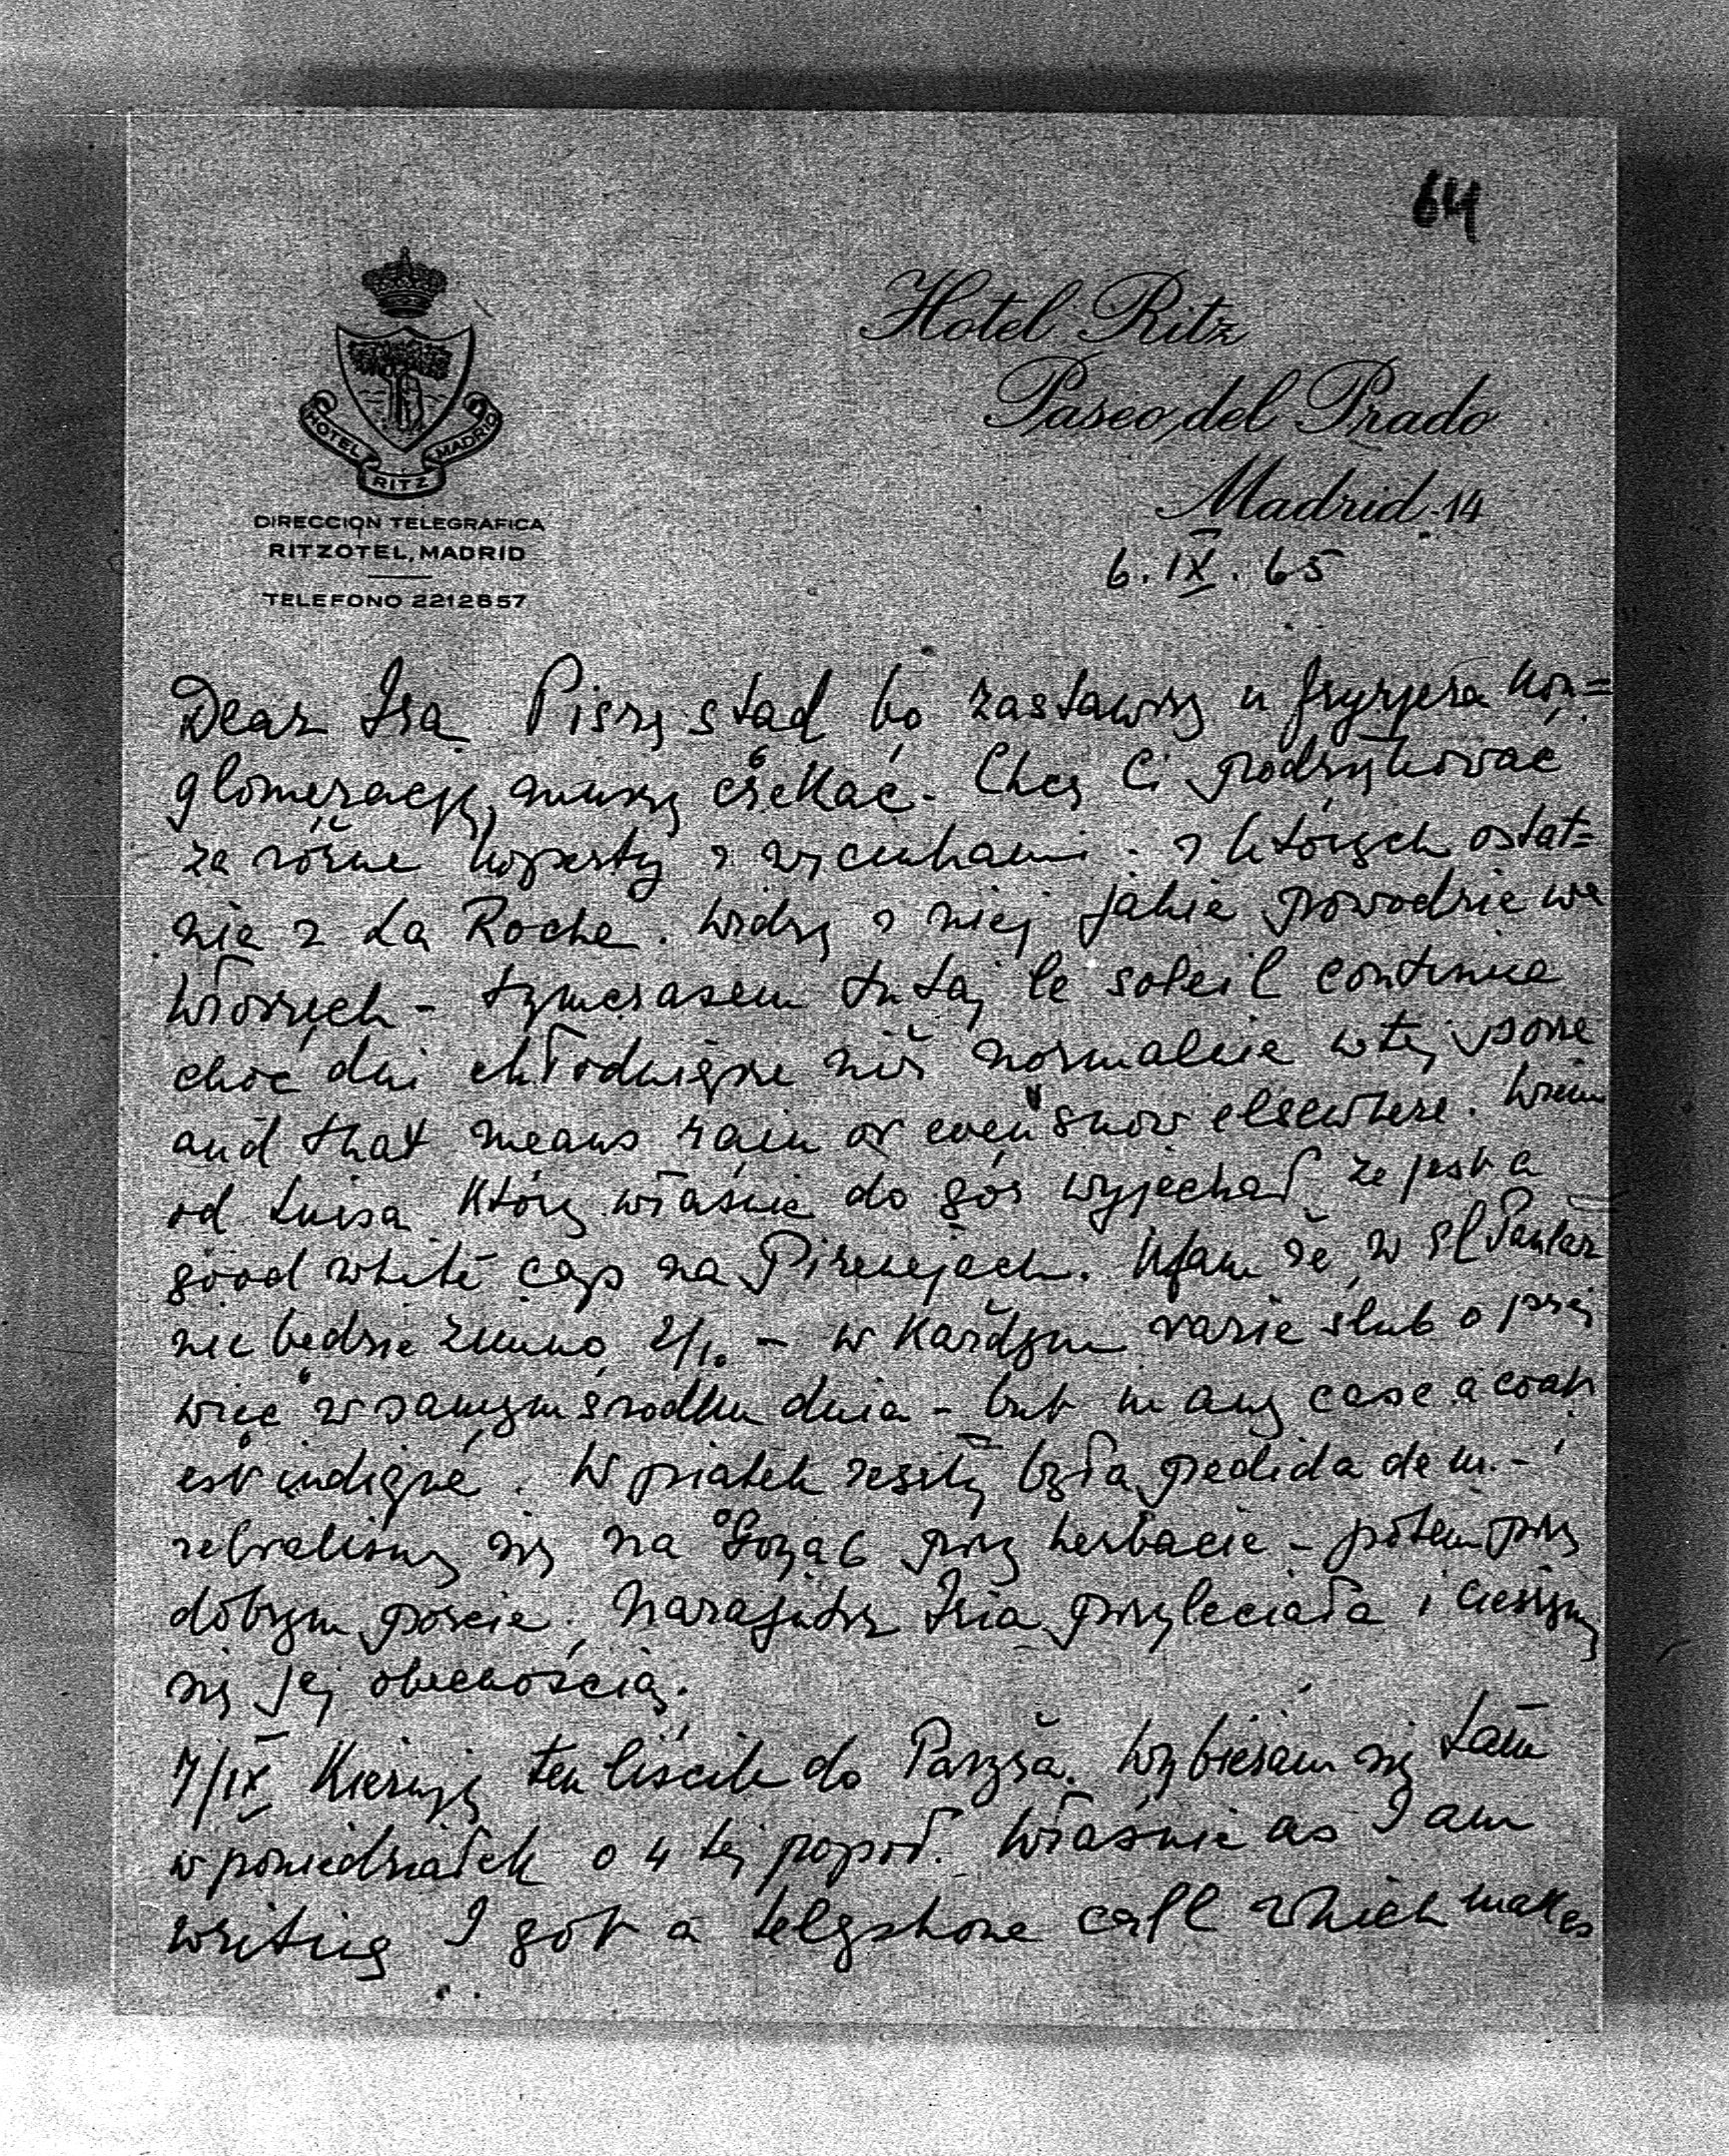 64
Hotel Ritz
Paseo del Prado
Madrid-14
HOTEL RITZ MADRID
DIRECCION TELEGRAFICA
RITZOTEL, MADRID
TELEFONO 2212857
6. IX. 65
Dear Isa Piszę stąd bo zastawszy u fryzjera kon=
glomerację, muszę czekać. Chcę Ci podziękować
za różne koperty z wycinkami. z których ostat=
nia z La Roche. Widzę z niej jakie powodzie we
Włoszech - tymczasem tutaj le soleil continue
choć dni chłodniejsze niż normalnie w tej porze
and that means rain or even snow elsewhere. Wiem
od Luisa który właśnie do gór wyjechał że jest a
good white cap na Pirenejach. Ufam że w
nie będzie zimno 2/1. - w każdym razie ślub o 1szej
więc w samym środku dnia - but in any case a coat
est indiqué. W piątek zeszły była pedida de m. -
zebraliśmy się na 6 przy herbacie - potem przy
dobrym porcie. Nazajutrz Isia przyleciała i cieszymy
się jej obecnością.
7/IX Kieruję ten liścik do Paryża. Wybieram się tam
w poniedziałek o 4tej popoł. Właśnie as I am
writing I got a telephone call which makes